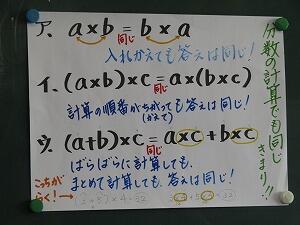 ア. a×b = b×a
同じ
入れかえても答えは同じ!
イ. (a×b)×c = a×(b×c)
同じ
計算の順番がちがっても答えは同じ!
(かえて)
ウ. (a+b)×c = a×c + b×c
同じ
ばらばらに計算しても、
まとめて計算しても、答えは同じ!
こっちが
らく!→
分数の計算でも同じ
きまり!!